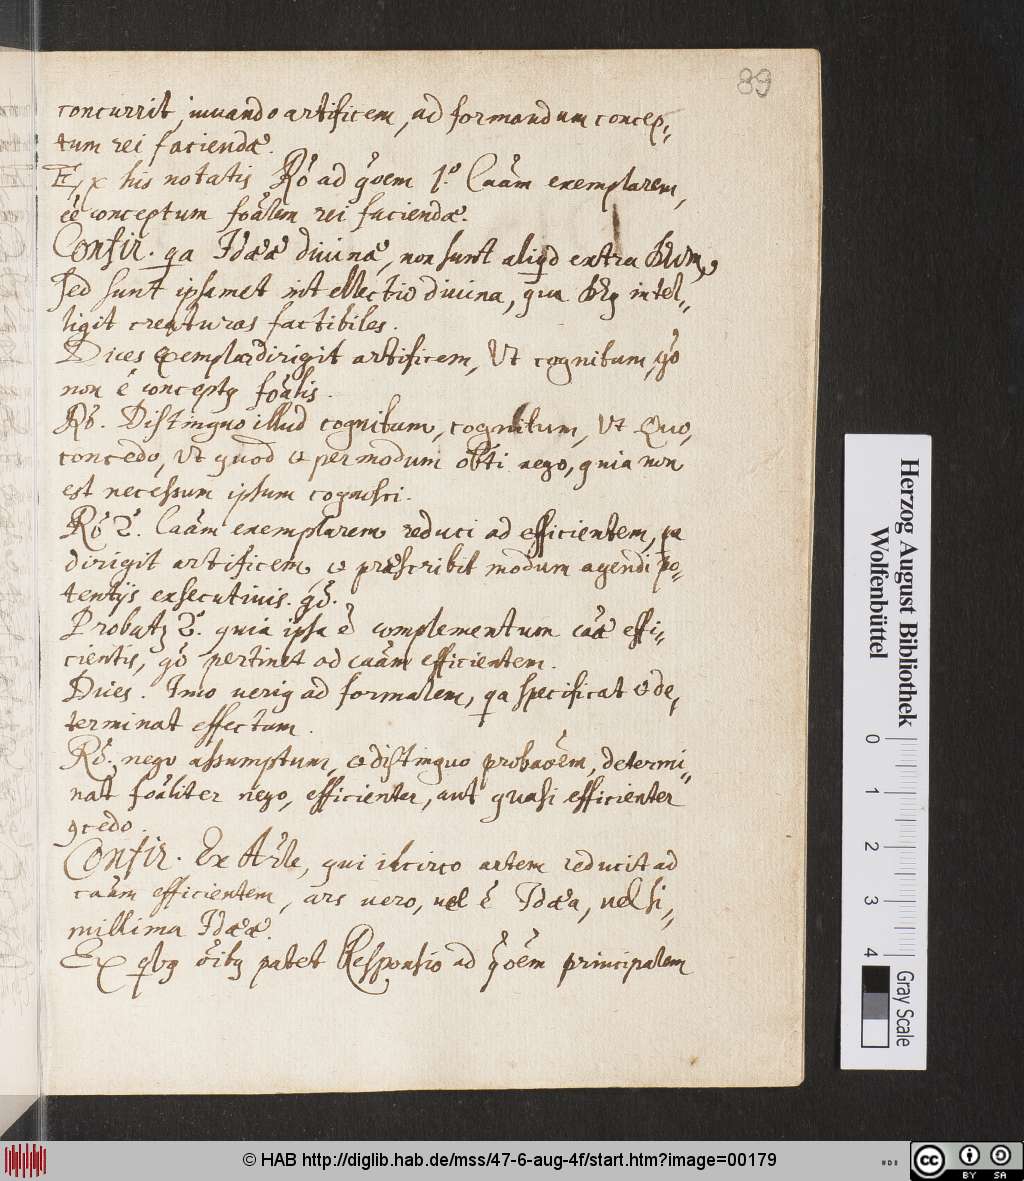 89
concurrit, iuuando artificem, ad formandum concep„
tum rei faciendæ.
Ex his notatis Rō ad q̄oem 1.º Caām exemplarem,
ēe conceptum foālem rei faciendæ.
Confir. qa Idææ diuinæ, non sunt aliqd extra Deum,
sed sunt ipsamet intellectio diuina, qua Deus intel„
ligit creaturas factibiles.
Dices exemplar dirigit artificem, Ut cognitum, gō
non ē conceptq foālis.
Rō. Distinguo illud cognitum, cognitum, Ut Quo,
concedo, Ut quod et per modum obti nego, quia non
est necessum ipsum cognosci.
Rō 2º. Caām exemplarem reduci ad efficientem, qa
dirigit artificem, et præscribit modum agendi po„
tentijs exsecutiuis. gō.
Probatq 2º. quia ipsa ē complementum caæ effi„
cientis, gō pertinet ad caām efficientem.
Dices. Imo veriq ad formalem, qa specificat et de„
terminat effectum.
Rō. nego assumptum, et distinguo probaōem, determi„
nat foāliter nego, efficienter, aut quasi efficienter
9cedo.
Confir. Ex Arle, qui idcirco artem reducit ad
caām efficientem, ars vero, uel ē Idæa, uel si„
millima Idææ.
Ex qbq oībq patet Responsio ad q̄oēm principalem
Herzog August Bibliothek
Wolfenbüttel
0 1 2 3 4
Gray Scale
© HAB http://diglib.hab.de/mss/47-6-aug-4f/start.htm?image=00179
cc BY SA